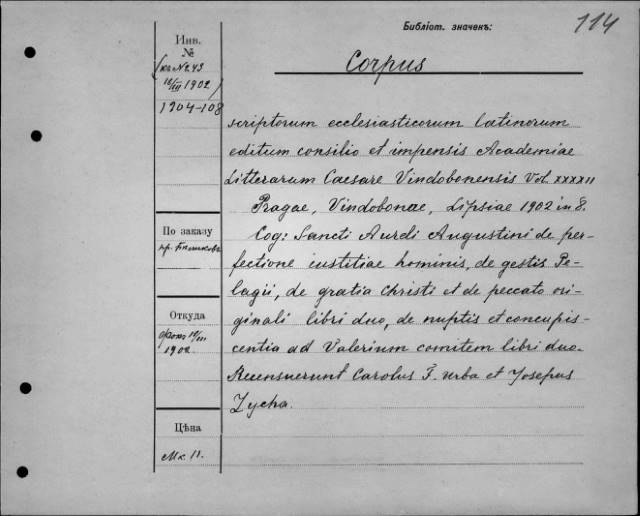 Библіот. значекъ:
114
Инв.
№
(къ № 243
12/III 1902)
1904-108
Corpus
scriptorum ecclesiasticorum latinorum
editum consilio et impensis Academiae
Litterarum Caesare Vindobonensis Vol. XXXXII
Pragae, Vindobonae, Lipsiae 1902 in 8.
По заказу
пр.
Cog: Sancti Aureli Augustini de per-
fectione iustitiae hominis, de gestis Pe-
lagii, de gratia Christi et de peccato ori-
ginali libri duo, de nuptis et concupis-
centia ad Valerium comitem libri duo.
Recensuerunt Carolus F. Urba et Josepus
Zycha.
Откуда
12/III
1902
Цѣна
Мк. 11.